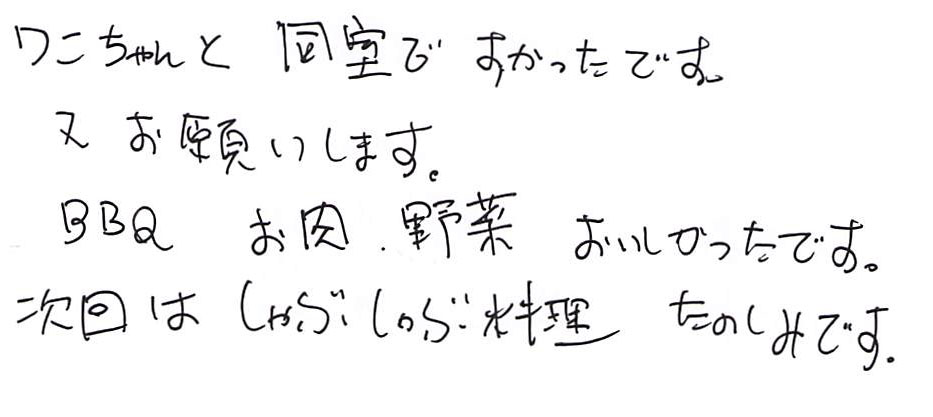 ワンちゃんと 同室で すかったです。
又 お願いします。
BBQ お肉.野菜 おいしかったです。
次回は しゃぶしゃぶ料理 たのしみです.